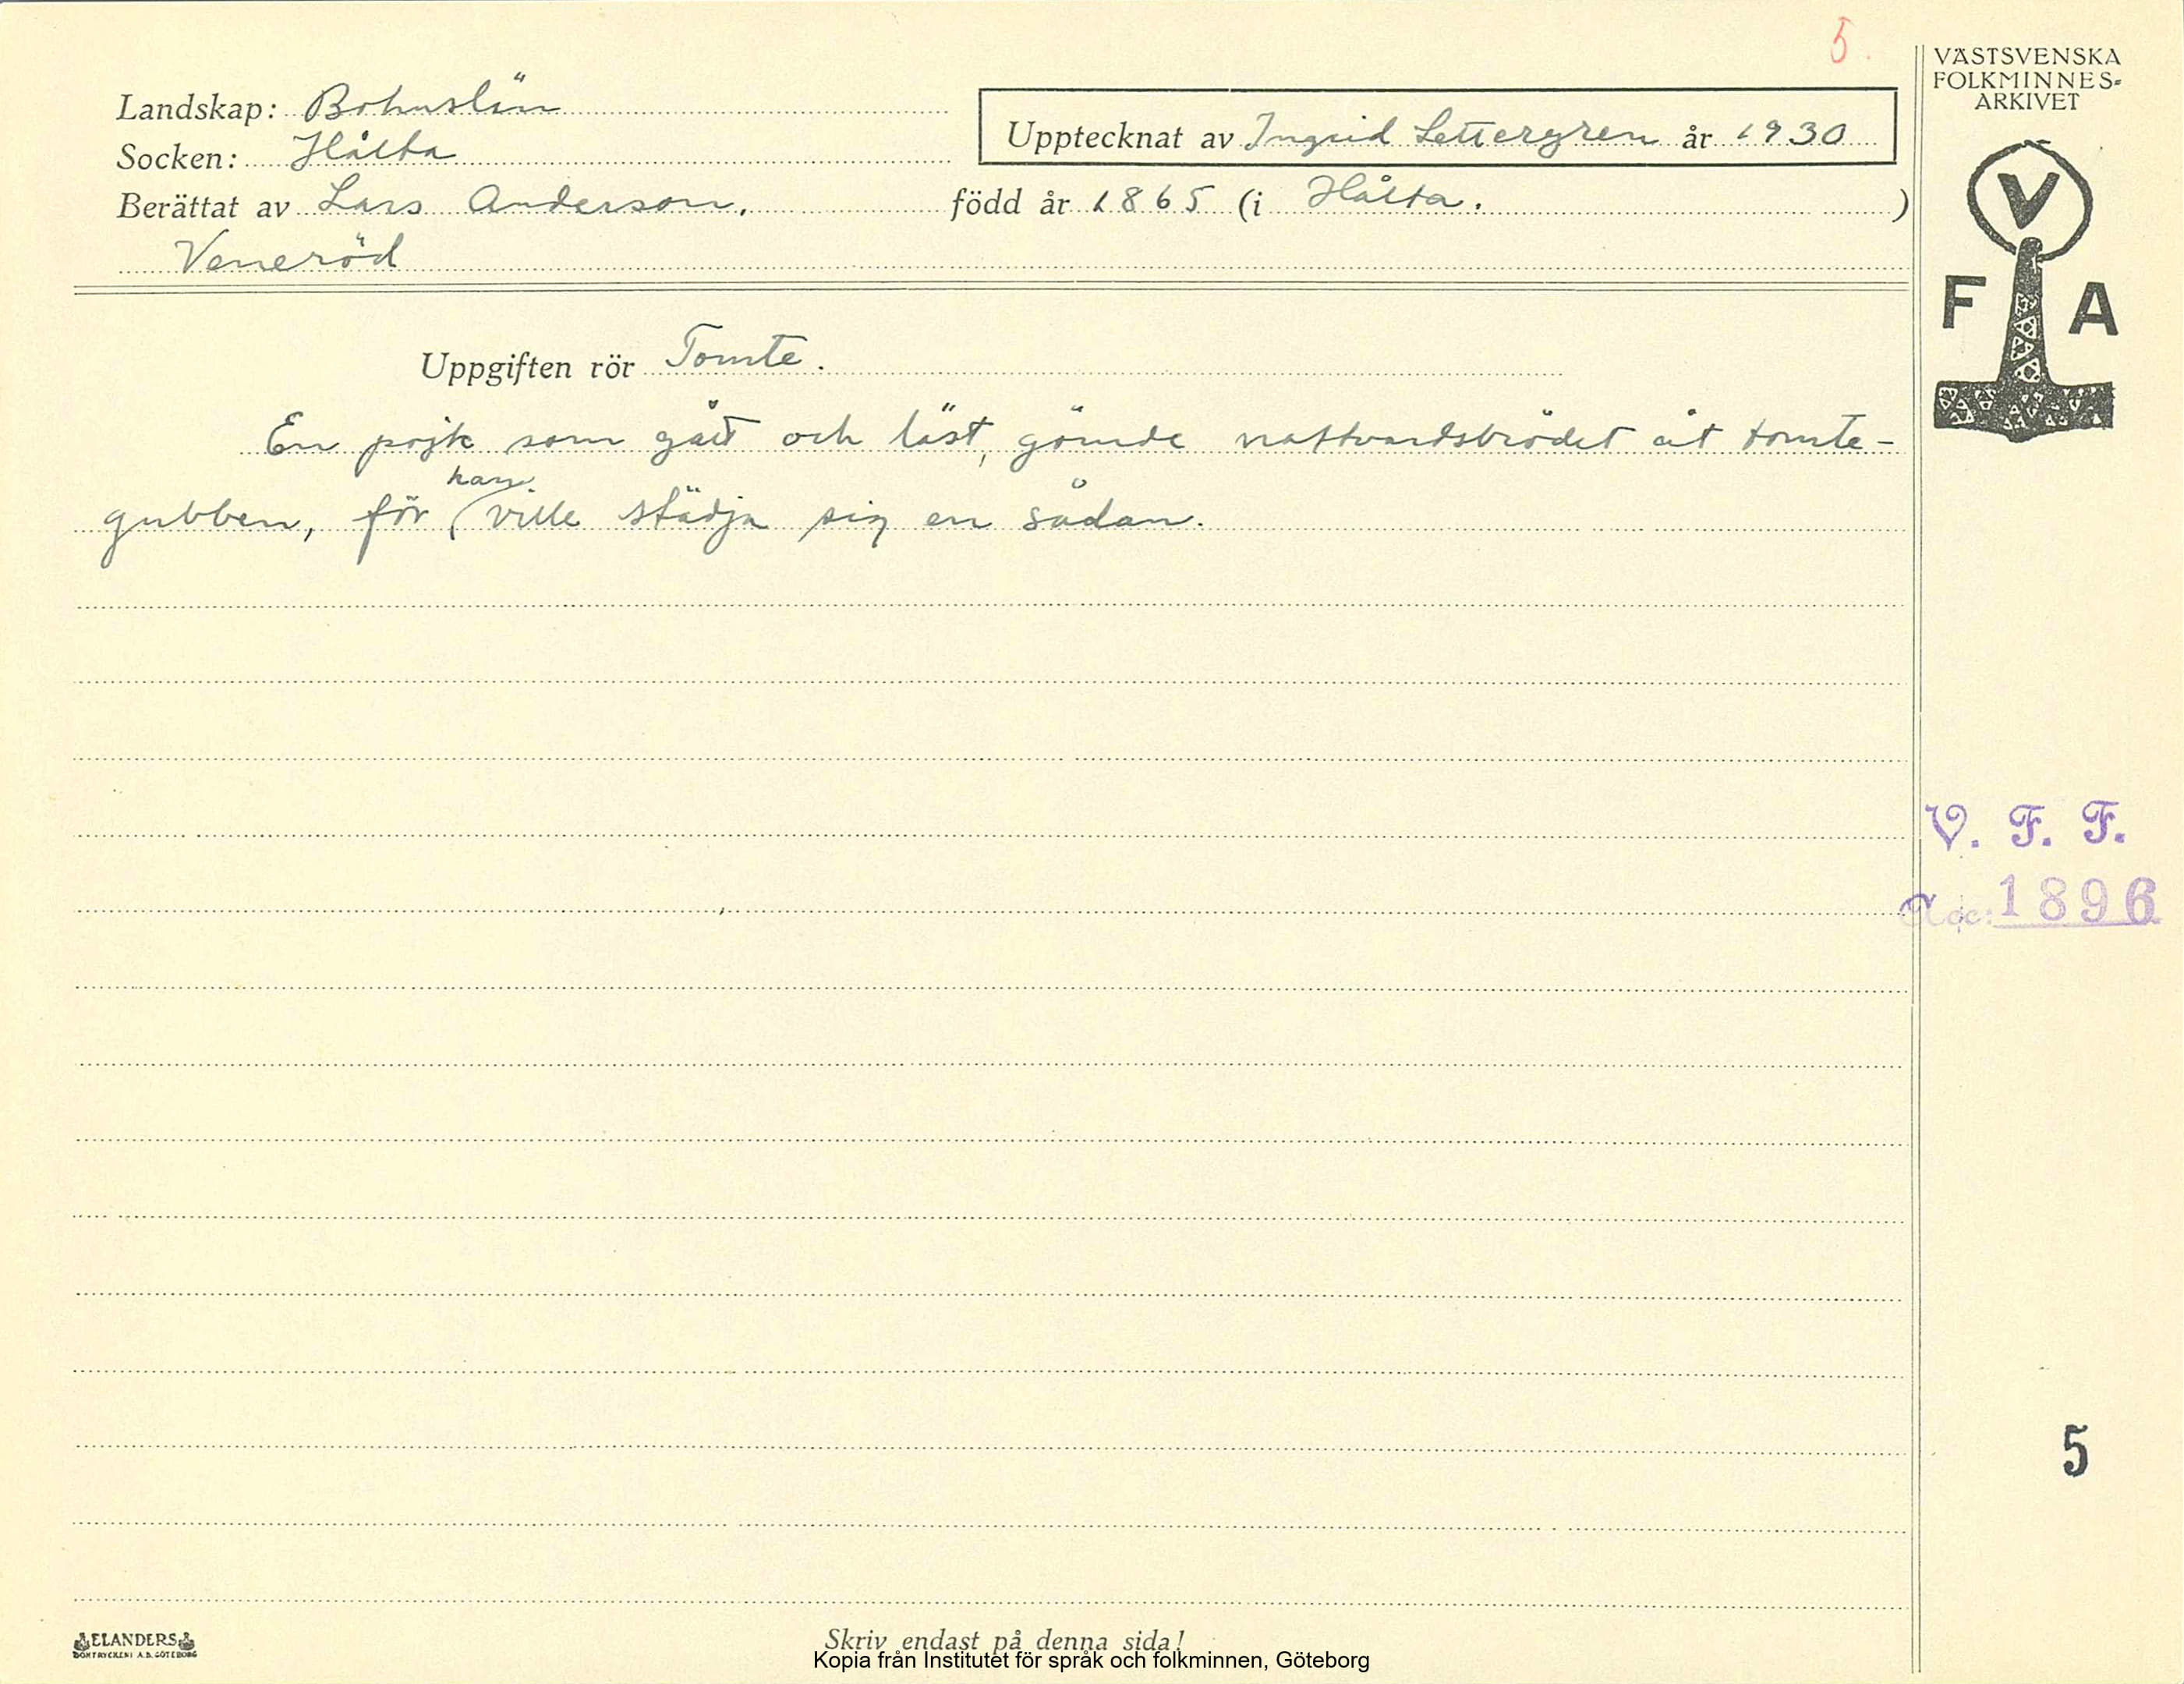 5.
VÄSTSVENSKA
FOLKMINNES-
ARKIVET
Landskap: Bohuslän
Upptecknat av Ingrid Settergren år 1930
Socken: Hålta
Berättat av Lars Anderson. född år 1865 (i Hålta. )
Veneröd
V
F A
Uppgiften rör Tomte.
En pojk som gått och läst, gömde nattvardsbrödet åt tomte-
gubben, för han ville städja sig en sådan.
V. F. F.
Acc: 1896
5
ELANDERS
BOKTRYCKERI A.B. GÖTEBORG
Skriv endast på denna sida!
Kopia från Institutet för språk och folkminnen, Göteborg